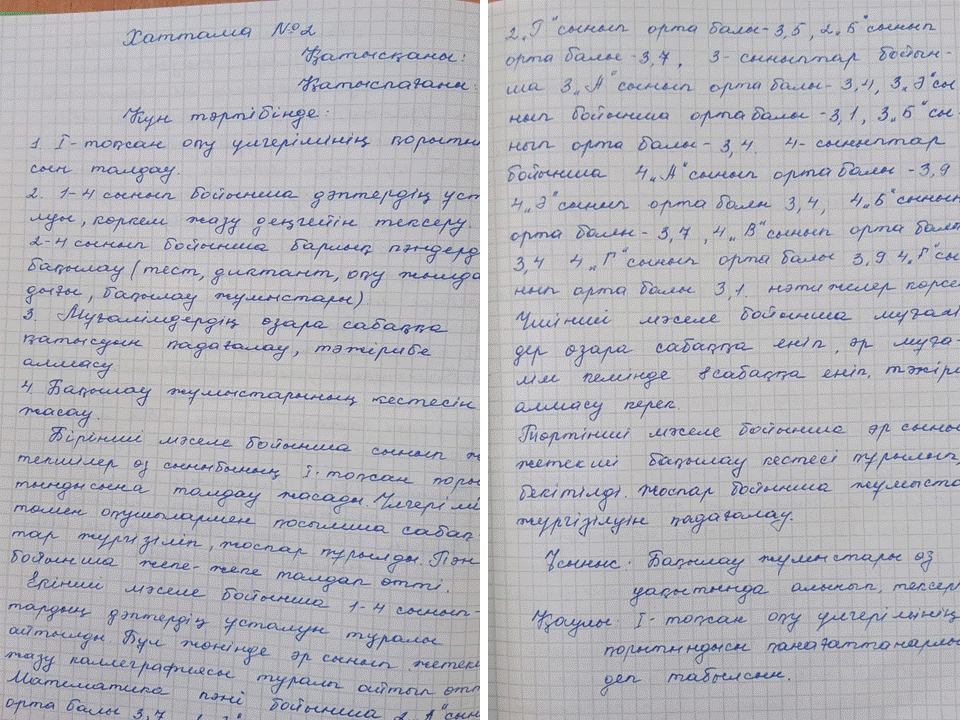 Хаттама №2
Қатысқаны:
Қатыспағаны:
Күн тәртібінде:
1. I-тоқсан оқу үлгерімінің қорытын
сын талдау.
2. 1-4 сынып бойынша дәптердің ұст
луы, көркем жазу деңгейін тексеру.
2-4 сынып бойынша барлық пәндерд
бақылау (тест, диктант, оқу жылда
дығы, бақылау жұмыстары).
3 Мұғалімдердің өзара сабаққа
қатысуын қадағалау, тәжірибе
алмасу.
4. Бақылау жұмыстарының кестесін
жасау.
Бірінші мәселе бойынша сынып ж
текшілер өз сыныбының I-тоқсан қоры
тындысына талдау жасады. Үлгерімі
төмен оқушылармен қосымша сабақ
тар жүргізіліп, жоспар құрылды. Пән
бойынша жеке-жеке талдап өтті.
Екінші мәселе бойынша 1-4 сынып-
тардың дәптердің ұсталуы туралы
айтылды. Бұл жөнінде әр сынып жетек
жазу каллиграфиясы туралы айтып өтт
Математика пәні бойынша 2 „А" сын
орта балы 3,7
2 „Г" сынып орта балы-3,5, 2„Б" сынып
орта балы-3,7, 3-сыныптар бойын-
ша 3„А" сынып орта балы-3,4, 3„Ә" сы
нып бойынша орта балы-3,1, 3„Б" сы-
нып орта балы-3,4. 4-сыныптар
бойынша 4„А" сынып орта балы-3,9
4„Ә" сынып орта балы 3,4, 4„Б" сынып
орта балы-3,7, 4„В" сынып орта балы
3,4 4„Г" сынып орта балы 3,9 4„Ғ" сы
нып орта балы 3,1 нәтижелер көрсе
Үшінші мәселе бойынша мұғалі
дер өзара сабаққа еніп, әр мұға-
лім кемінде 8 сабаққа еніп, тәжір
алмасу керек.
Төртінші мәселе бойынша әр сынып
жетекші бақылау кестесі құрылып,
бекітілді. Жоспар бойынша жұмыста
жүргізілуін қадағалау.
Ұсыныс: Бақылау жұмыстары өз
уақытында алынып, тексер
Қаулы: I-тоқсан оқу үлгерімінің
қорытындысы қанағаттанарлы
деп табылсын.